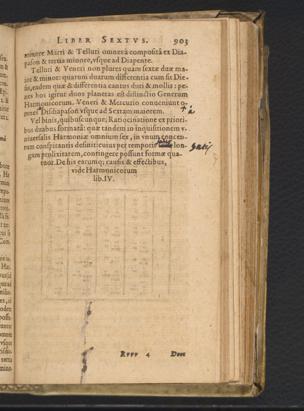 LIBER SEXTVS. 903
minore Marti & Telluri omnera compositâ ex Dia-
pason & tertia minore, vsque ad Diapente.
Telluri & Veneri non plures quam sextæ duæ ma-
ior & minor: quarum duarum differentia cum sit Die-
sis, eadem quæ & differentia cantus duri & mollis: pe-
nes hos igitur duos planetas est distinctio Generum
Harmonicorum. Veneri & Mercurio conueniunt o-
mnes Disdiapason vsque ad Sextam maiorem.
Vel binis, quibuscunque; Ratiocinatione ex priori-
bus duabus formatâ: quæ tandem in inquisitionem v-
niuersalis Harmoniæ omnium sex, in vnum concen-
tum conspirantis definit: cuius per temporis lon-
gam prolixitatem, contingere possunt formæ qua-
tuor. De his earumq; causis & effectibus,
vide Harmonicorum
lib. IV.
Rrrr 4